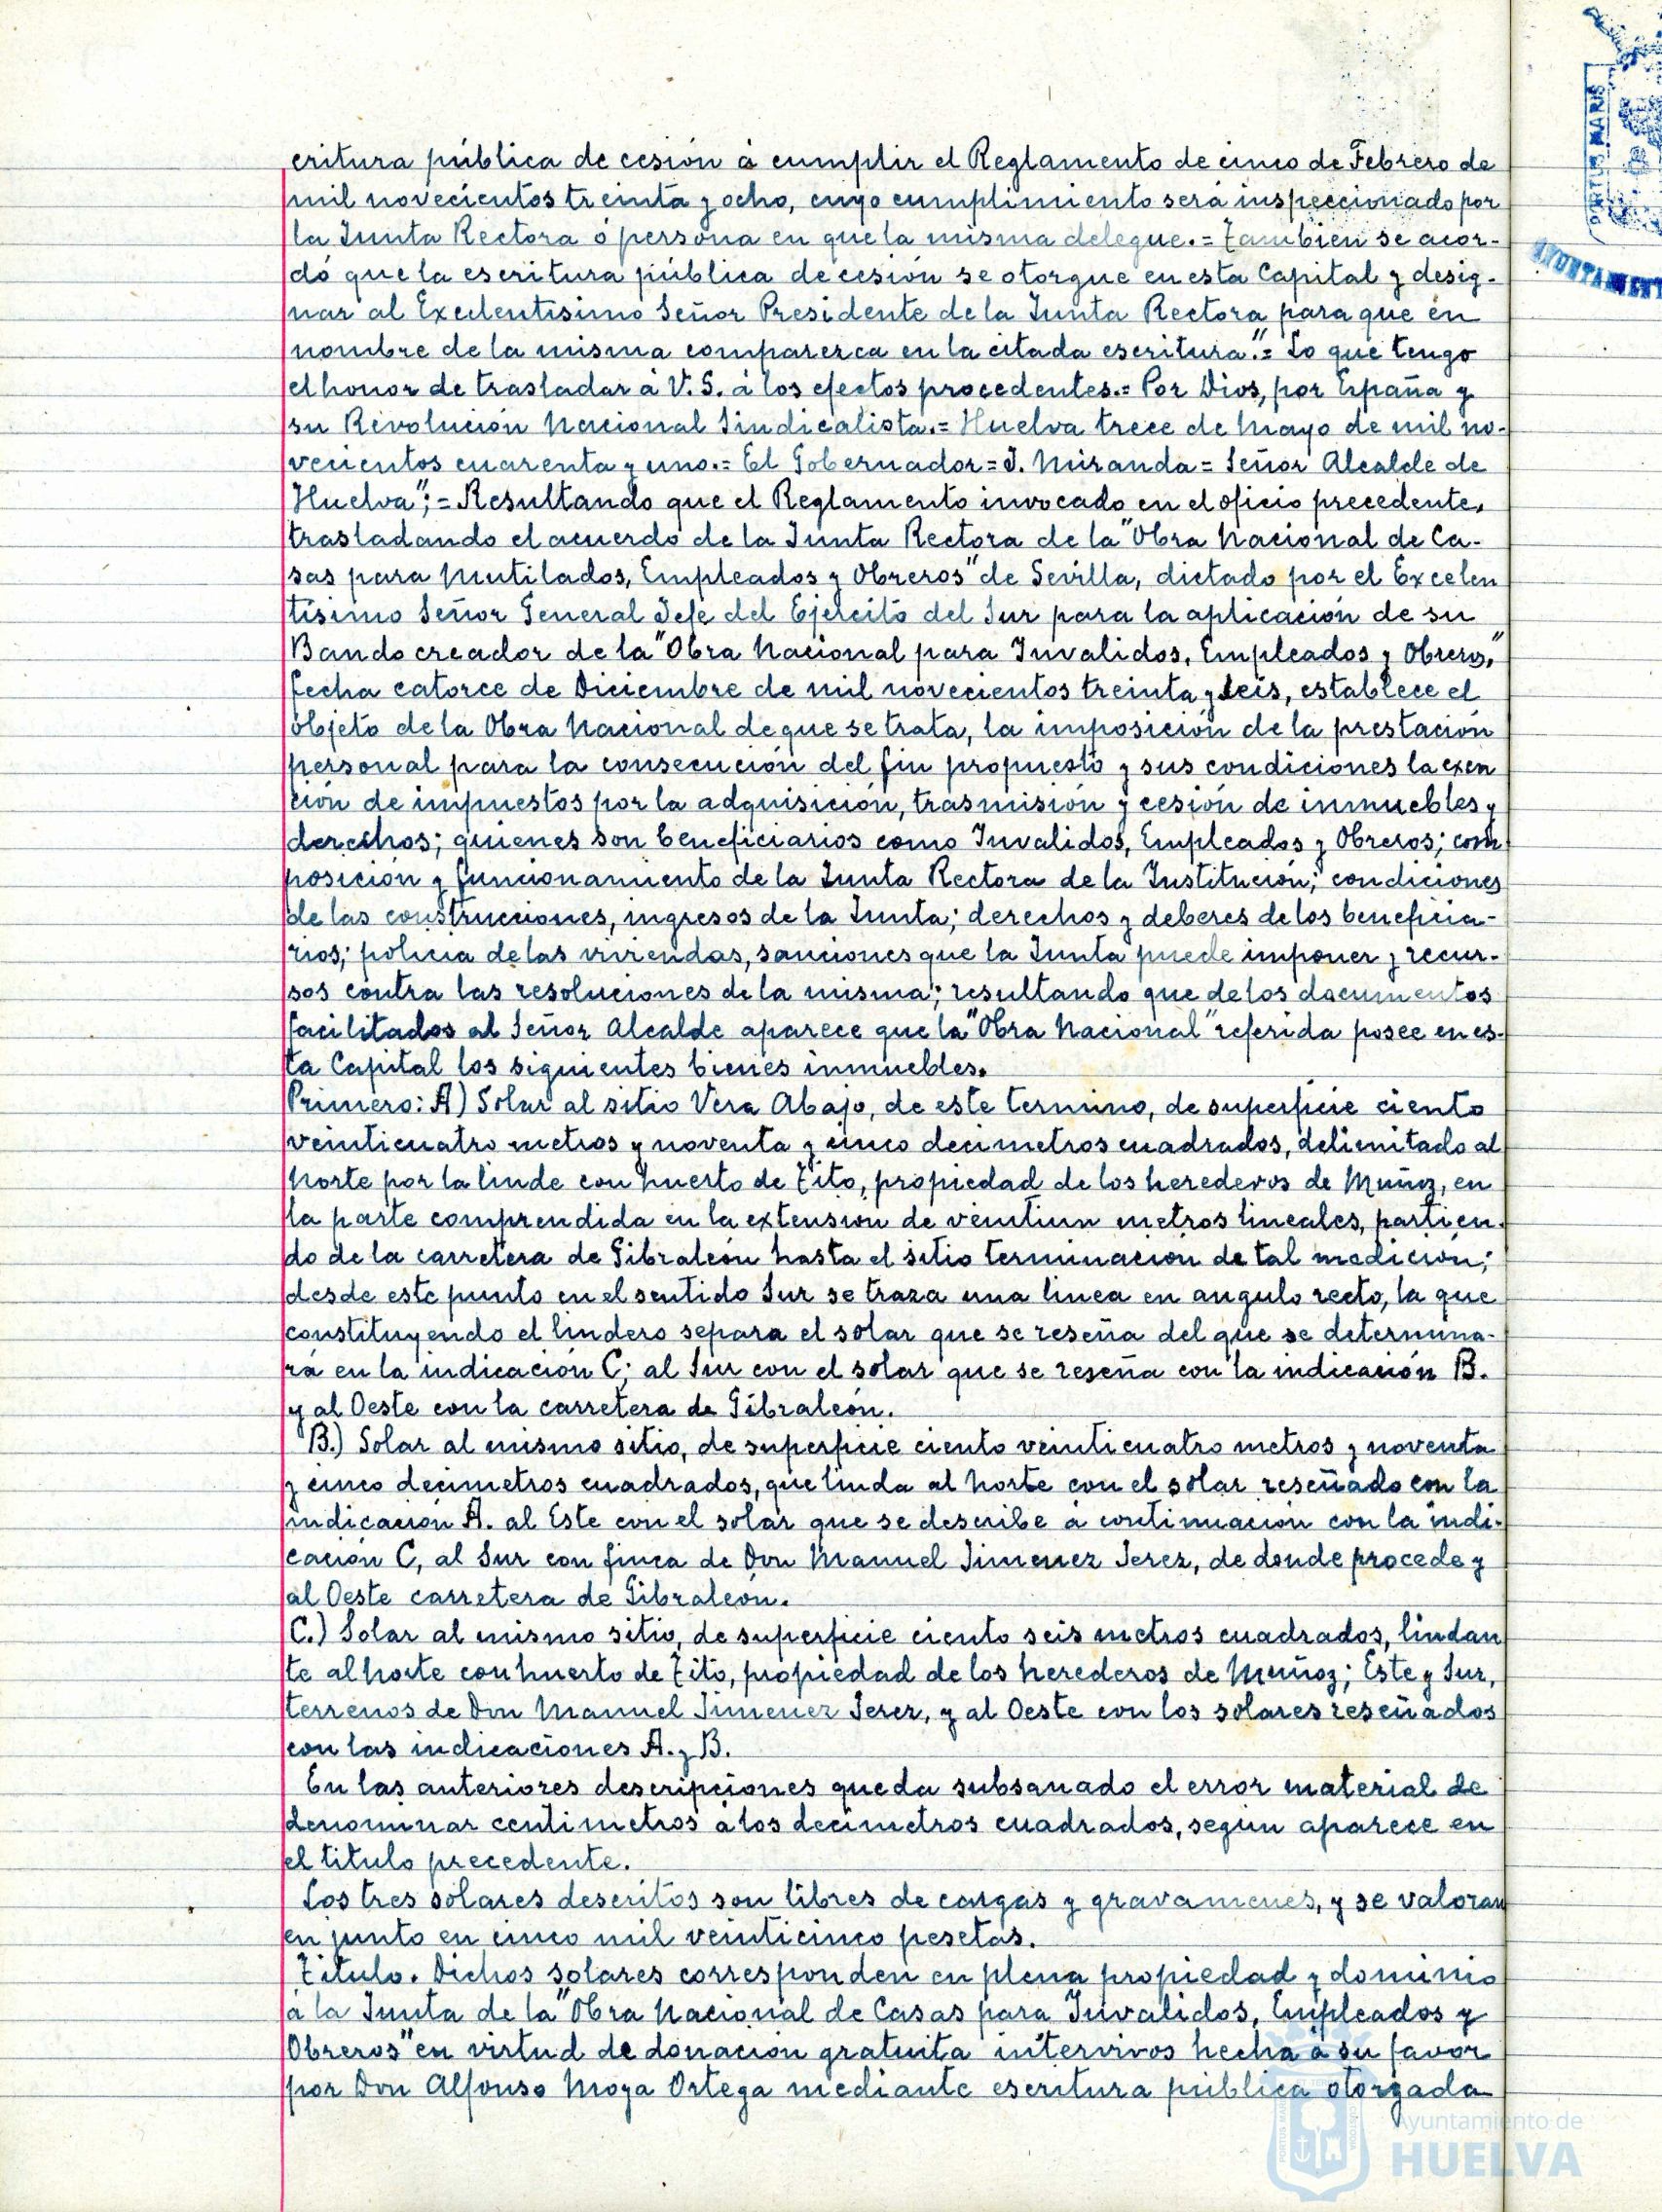 critura pública de cesión á cumplir el Reglamento de cinco de Febrero de
mil novecientos treinta y ocho, cuyo cumplimiento será inspeccionado por
la Junta Rectora ó persona en que la misma delegue.= Tambien se acor-
dó que la escritura pública de cesión se otorgue en esta Capital y desig-
nar al Excelentisimo Señor Presidente de la Junta Rectora para que en
nombre de la misma comparezca en la citada escritura".= Lo que tengo
el honor de trasladar á V.S. á los efectos procedentes.= Por Dios, por España y
su Revolución Nacional Sindicalista.= Huelva trece de Mayo de mil no-
vecientos cuarenta y uno.= El Gobernador= J. Miranda= Señor Alcalde de
Huelva";= Resultando que el Reglamento invocado en el oficio precedente,
trasladando el acuerdo de la Junta Rectora de la "Obra Nacional de Ca-
sas para Mutilados, Empleados y Obreros" de Sevilla, dictado por el Excelen
tísimo Señor General Jefe del Ejercito del Sur para la aplicación de su
Bando creador de la "Obra Nacional para Invalidos, Empleados y Obreros,"
fecha catorce de Diciembre de mil novecientos treinta y seis, establece el
objeto de la Obra Nacional de que se trata, la imposición de la prestación
personal para la consecución del fin propuesto y sus condiciones la exen
ción de impuestos por la adquisición, trasmisión y cesión de inmuebles y
derechos; quienes son beneficiarios como Invalidos, Empleados y Obreros; com
posición y funcionamiento de la Junta Rectora de la Institución; condiciones
de las construcciones, ingresos de la Junta; derechos y deberes de los beneficia-
rios; policia de las viviendas, sanciones que la Junta puede imponer y recur-
sos contra las resoluciones de la misma; resultando que de los documentos
facilitados al Señor Alcalde aparece que la "Obra Nacional" referida posee en es-
ta Capital los siguientes bienes inmuebles.
Primero: A) Solar al sitio Vera Abajo, de este termino, de superficie ciento
veinticuatro metros y noventa y cinco decimetros cuadrados, delimitado al
Norte por la linde con huerto de Tito, propiedad de los herederos de Muñoz, en
la parte comprendida en la extension de veintiun metros lineales, partien-
do de la carretera de Gibraleón hasta el sitio terminación de tal medición;
desde este punto en el sentido Sur se traza una linea en angulo recto, la que
constituyendo el lindero separa el solar que se reseña del que se determina-
rá en la indicación C; al Sur con el solar que se reseña con la indicación B.
y al Oeste con la carretera de Gibraleón.
B.) Solar al mismo sitio, de superficie ciento veinticuatro metros y noventa
y cinco decimetros cuadrados, que linda al Norte con el solar reseñado con la
indicación A. al Este con el solar que se describe á continuación con la indi-
cación C, al Sur con finca de Don Manuel Jimenez Jerez, de donde procede y
al Oeste carretera de Gibraleón.
C.) Solar al mismo sitio, de superficie ciento seis metros cuadrados, lindan
te al Norte con huerto de Tito, propiedad de los herederos de Muñoz; Este y Sur,
terrenos de Don Manuel Jimenez Jerez, y al Oeste con los solares reseñados
con las indicaciones A. y B.
En las anteriores descripciones queda subsanado el error material de
denominar centimetros a los decimetros cuadrados, según aparece en
el titulo precedente.
Los tres solares descritos son libres de cargas y gravamenes, y se valoran
en junto en cinco mil veinticinco pesetas.
Titulo. Dichos solares corresponden en plena propiedad y dominio
á la Junta de la "Obra Nacional de Casas para Invalidos, Empleados y
Obreros" en virtud de donación gratuita intervivos hecha á su favor
por Don Alfonso Moya Ortega mediante escritura pública otorgada
PORTUS MARIS
AYUNTAMIENT
Ayuntamiento de
HUELVA